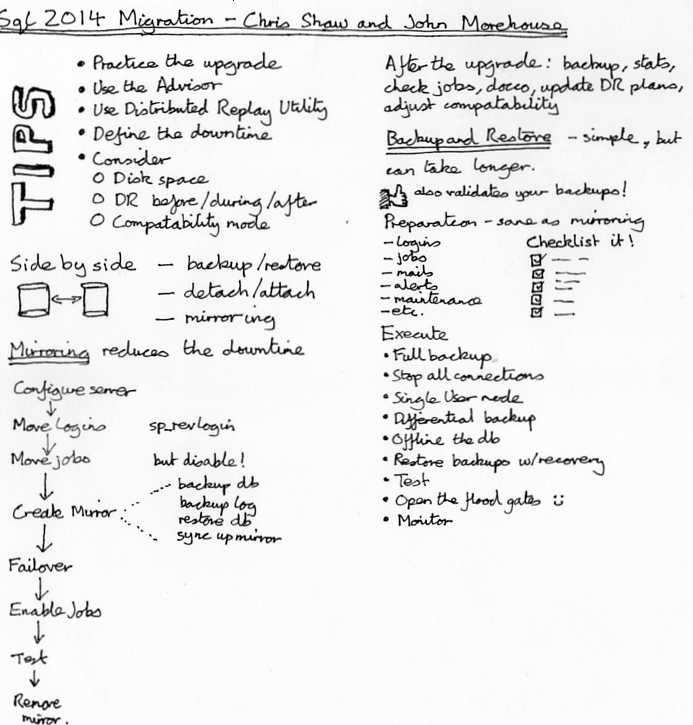 Sql 2014 Migration - Chris Shaw and John Morehouse
TIPS
• Practice the upgrade
• Use the Advisor
• Use Distributed Replay Utility
• Define the downtime
• Consider
O Disk space
O DR before/during/after
O Compatability mode
Side by side - backup/restore
- detach/attach
- mirroring
Mirroring reduces the downtime
Configure server
Move Logins sp_revlogin
Move jobs but disable!
Create Mirror
backup db
backup log
restore db
sync up mirror
Failover
Enable Jobs
Test
Remove
mirror.
After the upgrade: backup, stats,
check jobs, docco, update DR plans,
adjust compatability
Backup and Restore - simple, but
can take longer.
also validates your backups!
Preparation - same as mirroring
- logins
- jobs
- mails
- alerts
- maintenance
- etc.
Checklist it!
Execute
• Full backup
• Stop all connections
• Single User mode
• Differential backup
• Offline the db
• Restore backups w/recovery
• Test
• Open the flood gates
• Monitor